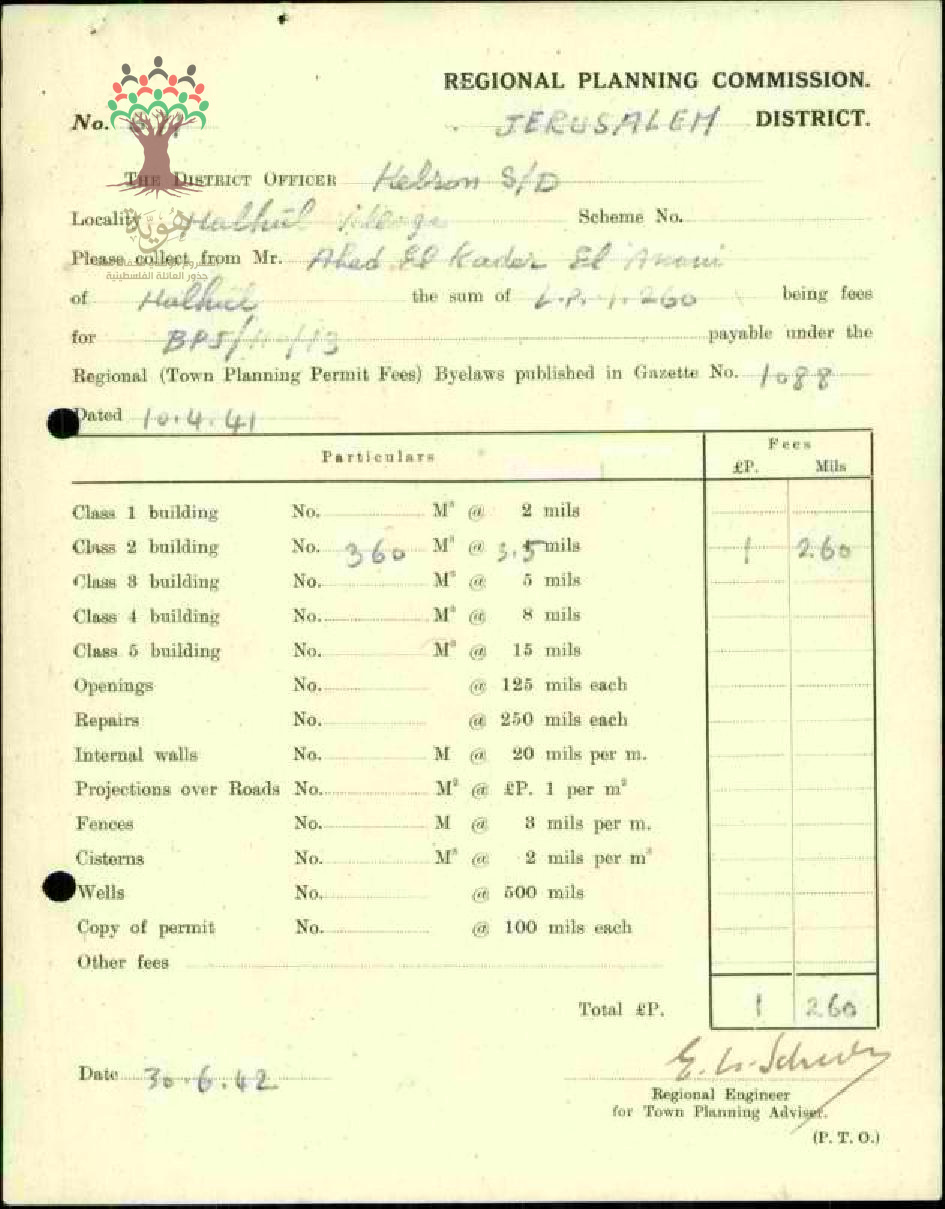 REGIONAL PLANNING COMMISSION.
No. JERUSALEM DISTRICT.
THE DISTRICT OFFICER Hebron S/D
Locality Halhul Village Scheme No.
هوية
Please collect from Mr. Abed El Kader El
جذور العائلة الفلسطينية
of Halhul the sum of L.P. 1.260 being fees
for payable under the
Regional (Town Planning Permit Fees) Byelaws published in Gazette No. 1088
Dated 10.4.41
Particulars Fees
£P. Mils
Class 1 building No. M² @ 2 mils
Class 2 building No. 360 M² @ 3.5 mils 1 260
Class 3 building No. M² @ 5 mils
Class 4 building No. M² @ 8 mils
Class 5 building No. M² @ 15 mils
Openings No. @ 125 mils each
Repairs No. @ 250 mils each
Internal walls No. M @ 20 mils per m.
Projections over Roads No. M² @ £P. 1 per m²
Fences No. M @ 3 mils per m.
Cisterns No. M³ @ 2 mils per m³
Wells No. @ 500 mils
Copy of permit No. @ 100 mils each
Other fees
Total £P. 1 260
Date 30.6.42
Regional Engineer
for Town Planning Adviser.
(P. T. O.)